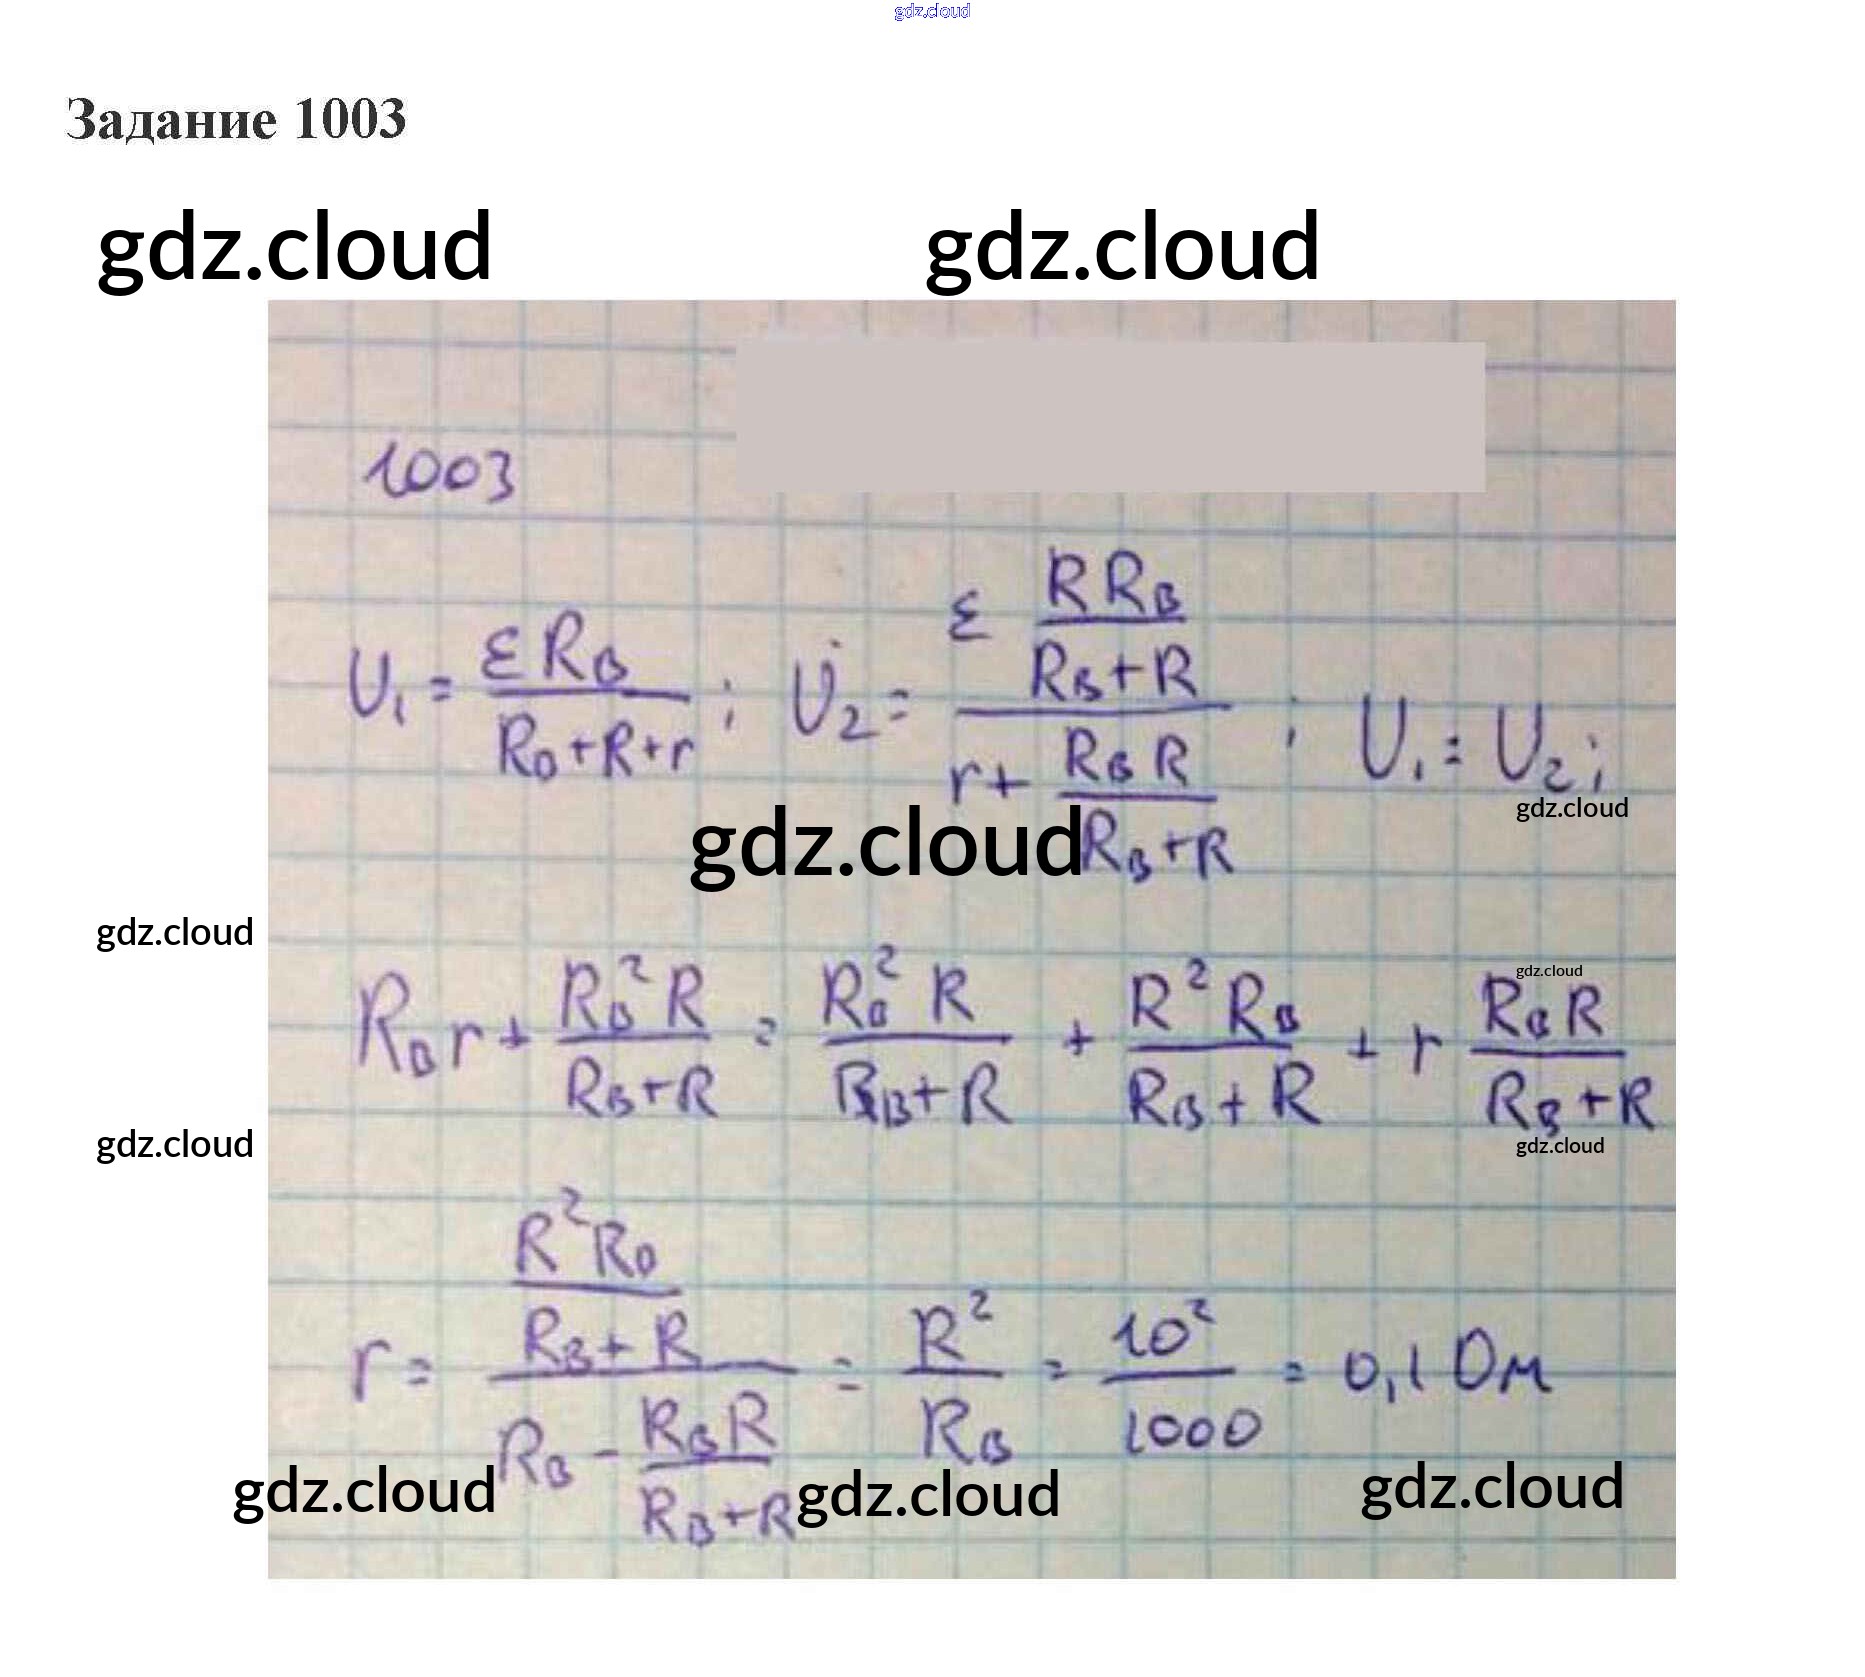 gdz.cloud
Задание 1003
gdz.cloud gdz.cloud
1003
U₁ = εR_B / (R_0 + R + r) ; U₂ = (ε RR_B / (R_B + R)) / (r + R_B R / (R_B + R)) ; U₁ = U₂ ;
gdz.cloud
gdz.cloud
gdz.cloud
R_B r + R_B² R / (R_B + R) = R_B² R / (R_B + R) + R² R_B / (R_B + R) + r R_B R / (R_B + R)
gdz.cloud
gdz.cloud
gdz.cloud
r = (R² R_0 / (R_B + R)) / (R_B - R_B R / (R_B + R)) = R² / R_B = 10² / 1000 = 0,1 Ом
gdz.cloud gdz.cloud gdz.cloud